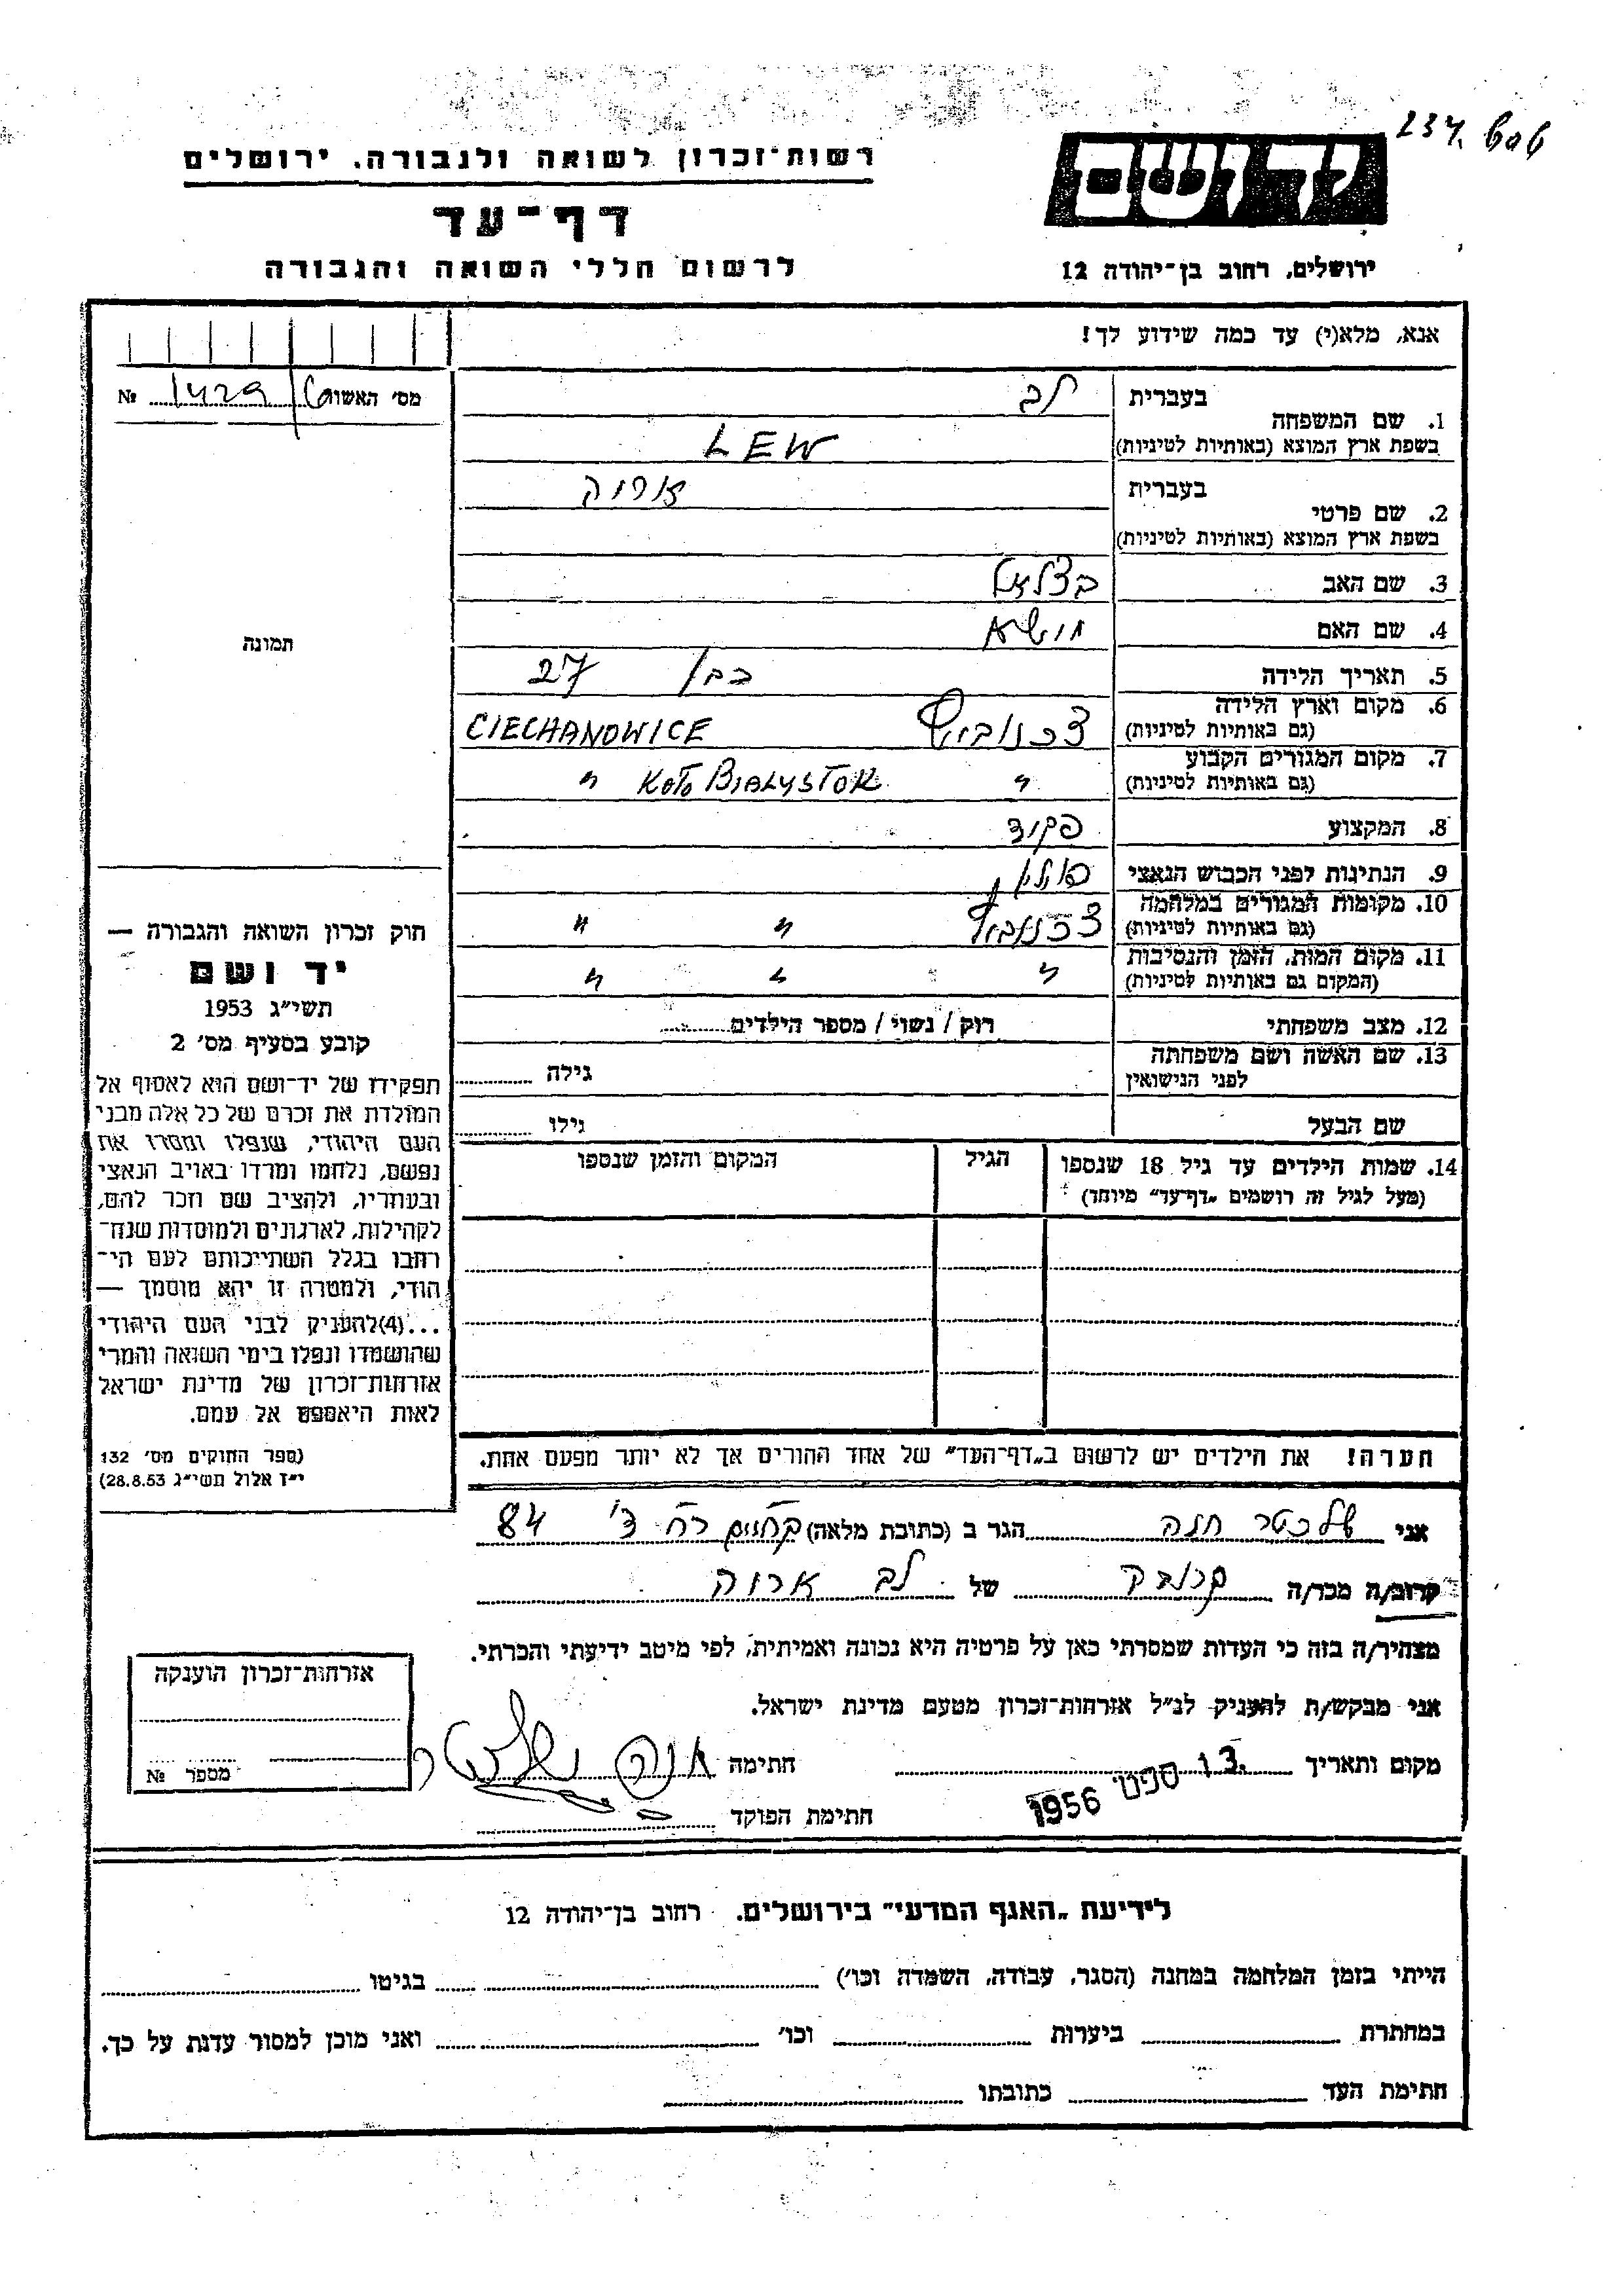 234. 606
רשות־זכרון לשואה ולגבורה, ירושלים
יד ושם
דף־עד
לרשום חללי השואה והגבורה
ירושלים, רחוב בן־יהודה 12
אנא, מלא(י) עד כמה שידוע לך!
מס' האשור 1429 №
1. שם המשפחה
בעברית לב
בשפת ארץ המוצא (באותיות לטיניות) LEW
2. שם פרטי
בעברית
בשפת ארץ המוצא (באותיות לטיניות)
3. שם האב בצלאל
4. שם האם
תמונה
5. תאריך הלידה כבן 27
6. מקום וארץ הלידה
(גם באותיות לטיניות) CIECHANOWICE
7. מקום המגורים הקבוע
(גם באותיות לטיניות) " KOŁO BIAŁYSTOK "
8. המקצוע פקיד
9. הנתינות לפני הכבוש הנאצי פולין
10. מקומות המגורים במלחמה
(גם באותיות לטיניות) " "
11. מקום המות, הזמן והנסיבות
(המקום גם באותיות לטיניות) " " "
12. מצב משפחתי רוק / נשוי / מספר הילדים
13. שם האשה ושם משפחתה
לפני הנישואין גילה
שם הבעל גילו
14. שמות הילדים עד גיל 18 שנספו הגיל המקום והזמן שנספו
(מעל לגיל זה רושמים „דף־עד” מיוחד)
חוק זכרון השואה והגבורה —
יד ושם
תשי״ג 1953
קובע בסעיף מס' 2
תפקידו של יד־ושם הוא לאסוף אל
המולדת את זכרם של כל אלה מבני
העם היהודי, שנפלו ומסרו את
נפשם, נלחמו ומרדו באויב הנאצי
ובעוזריו, ולהציב שם וזכר להם,
לקהילות, לארגונים ולמוסדות שנח־
רבו בגלל השתייכותם לעם הי־
הודי, ולמטרה זו יהא מוסמך —
...(4) להעניק לבני העם היהודי
שהושמדו ונפלו בימי השואה והמרי
אזרחות־זכרון של מדינת ישראל
לאות היאספם אל עמם.
(ספר החוקים מס' 132
י״ז אלול תשי״ג 28.8.53)
הערה! את הילדים יש לרשום ב„דף־העד” של אחד ההורים אך לא יותר מפעם אחת.
אני שלכטר חנה הגר ב (כתובת מלאה) 84
קרוב/ה מכר/ה של לב
מצהיר/ה בזה כי העדות שמסרתי כאן על פרטיה היא נכונה ואמיתית, לפי מיטב ידיעתי והכרתי.
אני מבקש/ת להעניק לנ״ל אזרחות־זכרון מטעם מדינת ישראל.
מקום ותאריך 13. ספט' 1956 חתימה חנה שלכטר
חתימת הפוקד
אזרחות־זכרון הוענקה
מספר №
לידיעת „האגף המדעי” בירושלים, רחוב בן־יהודה 12
הייתי בזמן המלחמה במחנה (הסגר, עבודה, השמדה וכו') בגיטו
במחתרת ביערות וכו' ואני מוכן למסור עדות על כך.
חתימת העד כתובתו